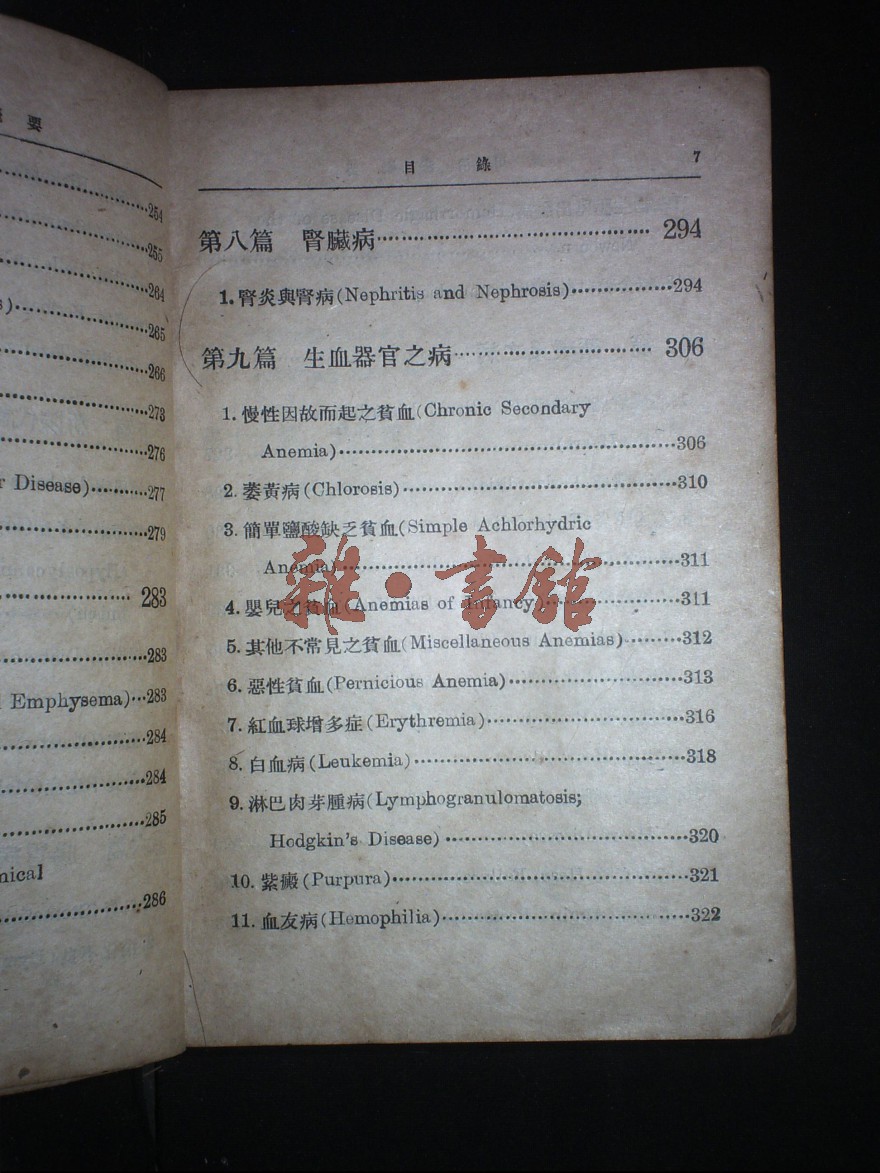 要
254
255
264
265
266
273
276
Disease) 277
279
283
283
Emphysema) 283
284
284
285
286
目 錄 7
第八篇 腎臟病 294
1. 腎炎與腎病(Nephritis and Nephrosis) 294
第九篇 生血器官之病 306
1. 慢性因故而起之貧血(Chronic Secondary
Anemia) 306
2. 萎黃病(Chlorosis) 310
3. 簡單鹽酸缺乏貧血(Simple Achlorhydric
Anemia) 311
4. 嬰兒之貧血(Anemias of Infancy) 311
5. 其他不常見之貧血(Miscellaneous Anemias) 312
6. 惡性貧血(Pernicious Anemia) 313
7. 紅血球增多症(Erythremia) 316
8. 白血病(Leukemia) 318
9. 淋巴肉芽腫病(Lymphogranulomatosis;
Hodgkin's Disease) 320
10. 紫癜(Purpura) 321
11. 血友病(Hemophilia) 322
雜·書館